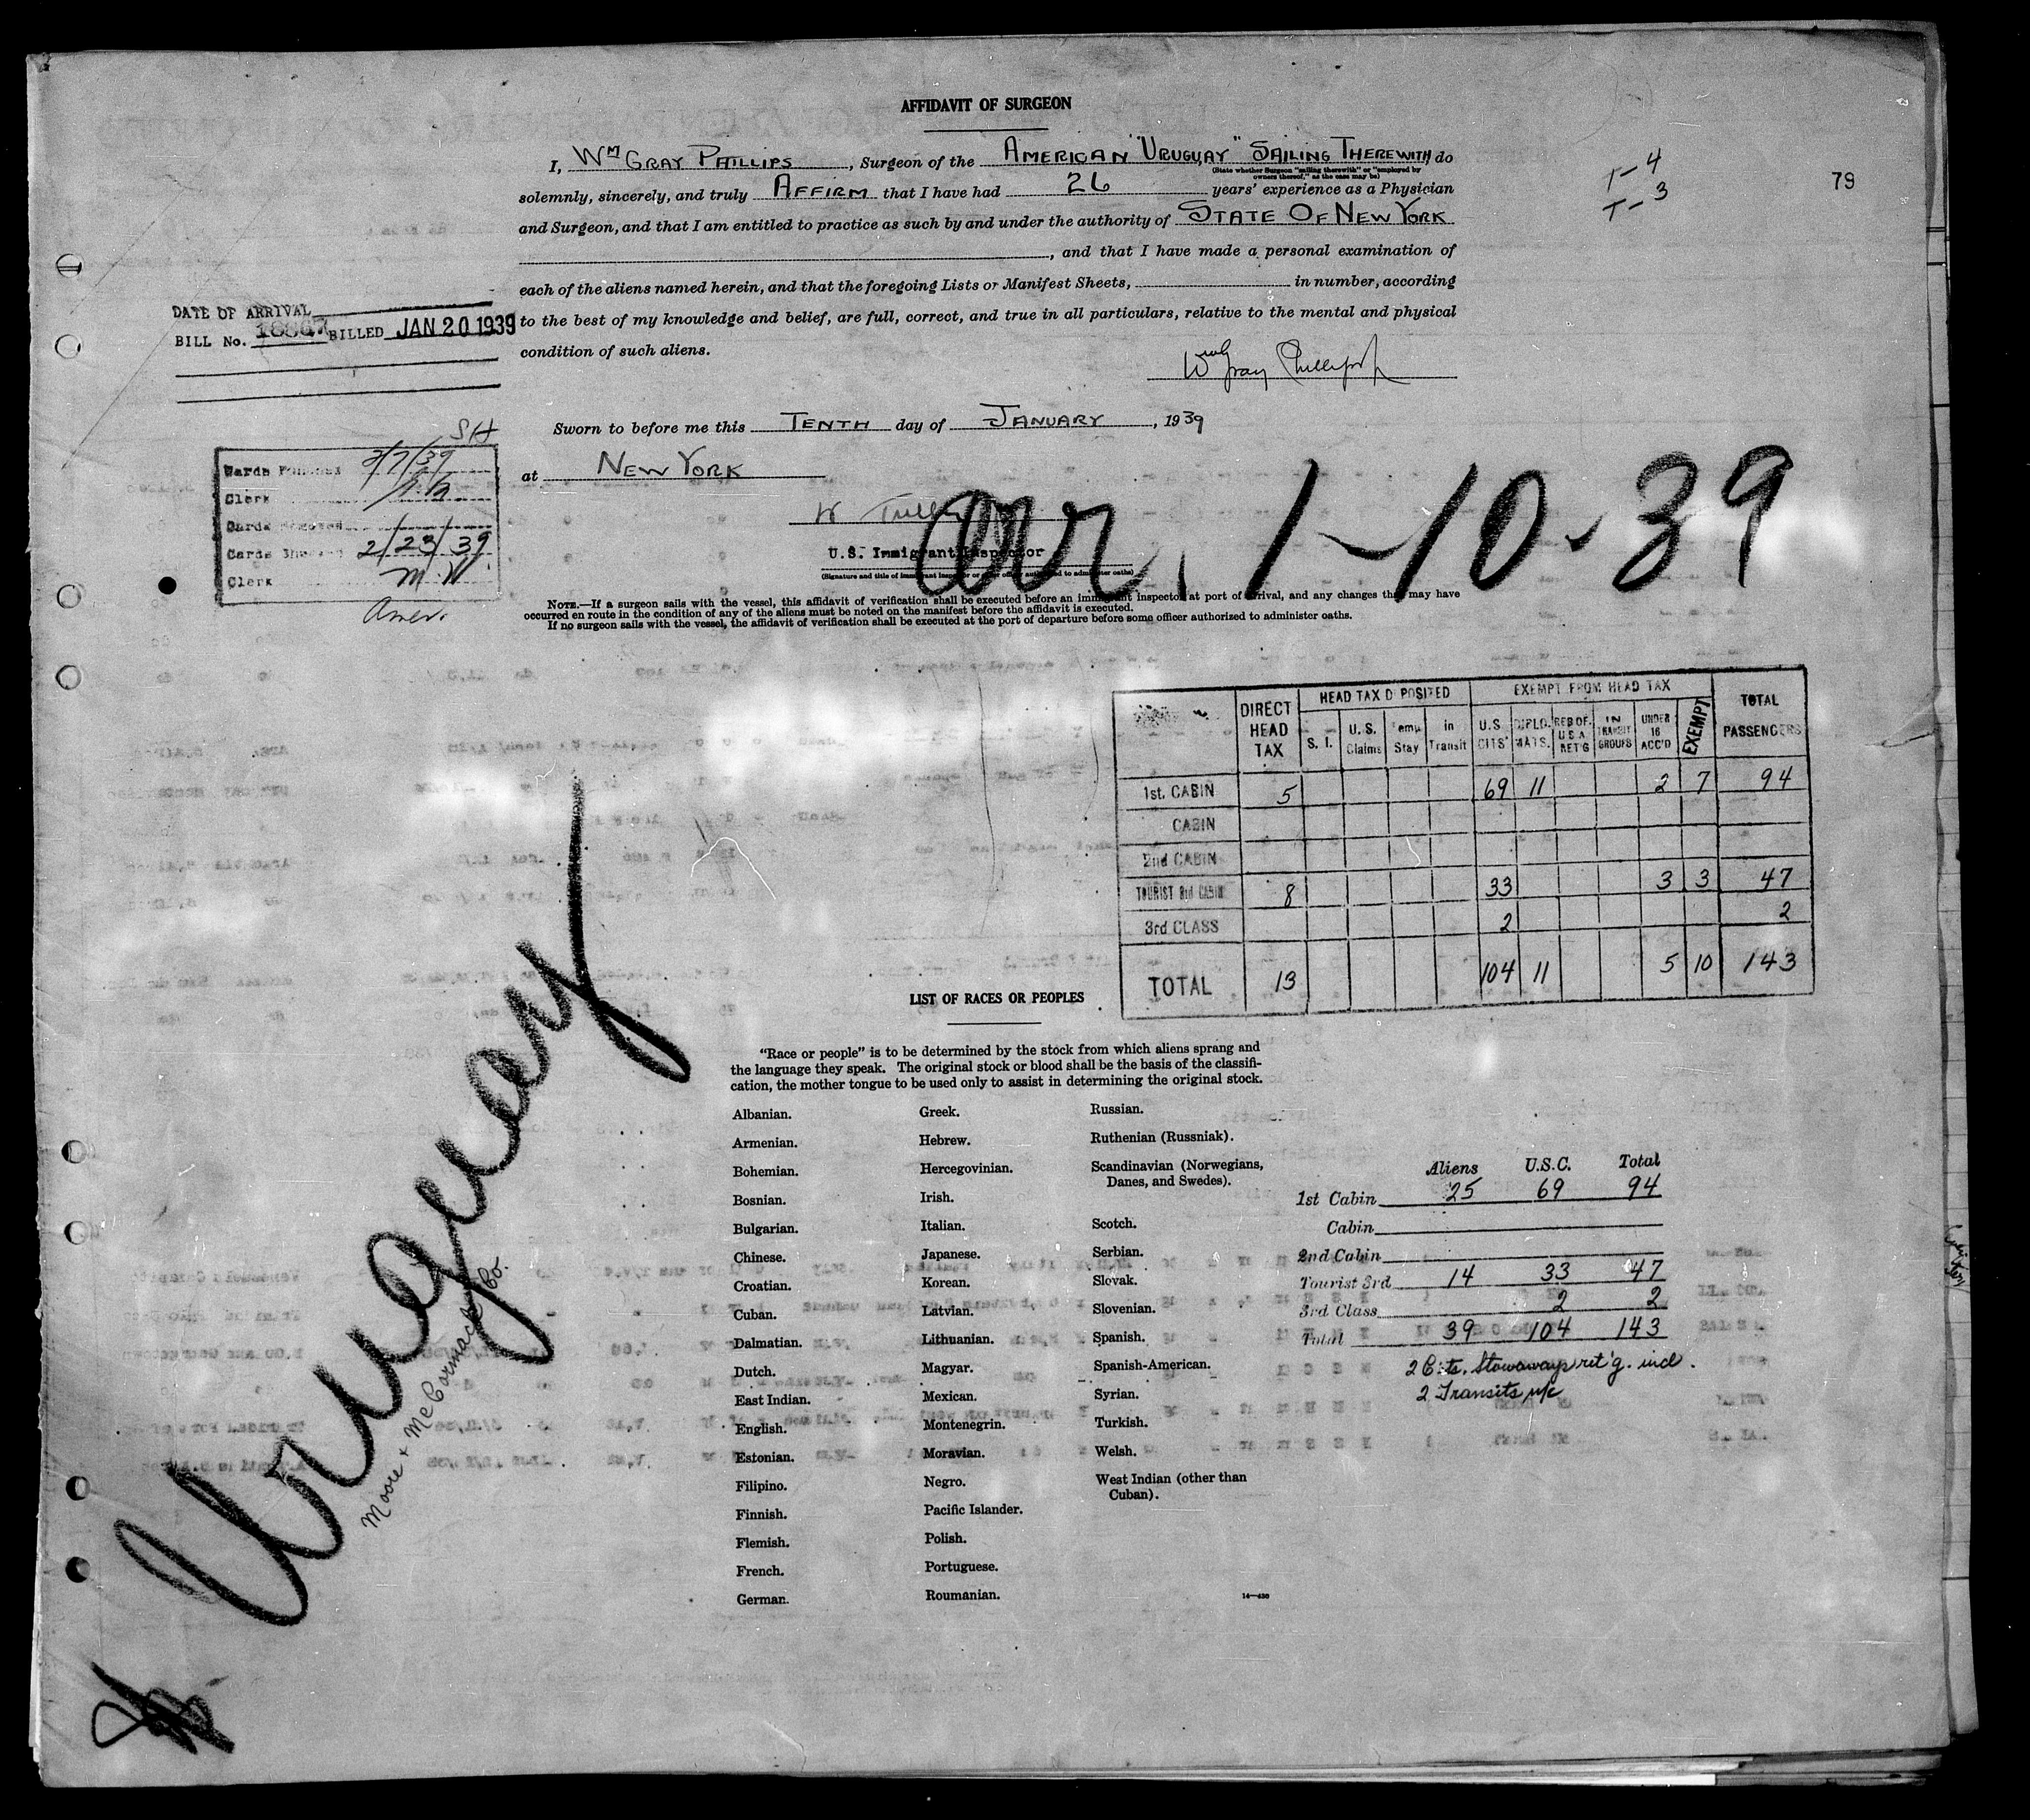 AFFIDAVIT OF SURGEON
I, Wm GRAY PHILLIPS, Surgeon of the AMERICAN "URUGUAY" SAILING THEREWITH, do
(State whether Surgeon "sailing therewith" or "employed by owners thereof," as the case may be)
solemnly, sincerely, and truly AFFIRM that I have had 26 years' experience as a Physician
and Surgeon, and that I am entitled to practice as such by and under the authority of STATE OF NEW YORK
, and that I have made a personal examination of
each of the aliens named herein, and that the foregoing Lists or Manifest Sheets, in number, according
to the best of my knowledge and belief, are full, correct, and true in all particulars, relative to the mental and physical
condition of such aliens.
Wm Gray Phillips
T-4
T-3
79
DATE OF ARRIVAL
BILL No. BILLED JAN 20 1939
Sworn to before me this TENTH day of JANUARY, 1939
at NEW YORK
SH
Clerk
Cards
2/23/39
Clerk M.W.
Amer.
W
U.S. Immigrant Inspector
(Signature and title of immigrant inspector or other officer authorized to administer oaths)
arr. 1-10-39
NOTE.—If a surgeon sails with the vessel, this affidavit of verification shall be executed before an immigrant inspector at port of arrival, and any changes that may have
occurred en route in the condition of any of the aliens must be noted on the manifest before the affidavit is executed.
If no surgeon sails with the vessel, the affidavit of verification shall be executed at the port of departure before some officer authorized to administer oaths.
DIRECT HEAD TAX HEAD TAX DEPOSITED EXEMPT FROM HEAD TAX TOTAL PASSENGERS
S. I. U.S. Claims Temp Stay in Transit U.S CITS' DIPLO. MATS. RES OF. U.S.A. RET'G IN TRANSIT GROUPS UNDER 16 ACC'D EXEMPT
1st. CABIN 5 69 11 2 7 94
CABIN
2nd CABIN
TOURIST 3rd CABIN 8 33 3 3 47
3rd CLASS 2 2
TOTAL 13 104 11 5 10 143
Uruguay
Moore & McCormack Co.
LIST OF RACES OR PEOPLES
"Race or people" is to be determined by the stock from which aliens sprang and
the language they speak. The original stock or blood shall be the basis of the classifi-
cation, the mother tongue to be used only to assist in determining the original stock.
Albanian.
Armenian.
Bohemian.
Bosnian.
Bulgarian.
Chinese.
Croatian.
Cuban.
Dalmatian.
Dutch.
East Indian.
English.
Estonian.
Filipino.
Finnish.
Flemish.
French.
German.
Greek.
Hebrew.
Hercegovinian.
Irish.
Italian.
Japanese.
Korean.
Latvian.
Lithuanian.
Magyar.
Mexican.
Montenegrin.
Moravian.
Negro.
Pacific Islander.
Polish.
Portuguese.
Roumanian.
Russian.
Ruthenian (Russniak).
Scandinavian (Norwegians,
Danes, and Swedes).
Scotch.
Serbian.
Slovak.
Slovenian.
Spanish.
Spanish-American.
Syrian.
Turkish.
Welsh.
West Indian (other than
Cuban).
14—430
Aliens U.S.C. Total
1st Cabin 25 69 94
Cabin
2nd Cabin
Tourist 3rd 14 33 47
3rd Class 2 2
Total 39 104 143
2 Cits. Stowaways ret'g. incl.
2 Transits